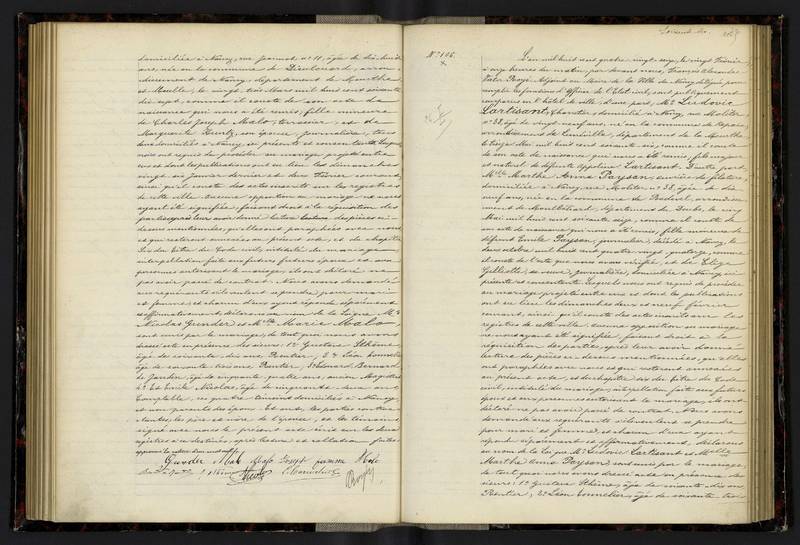 domiciliée à Nancy, rue Jeannot, n° 11, âgée de dix-huit
ans, née en la commune de Dieulouard, arron-
dissement de Nancy, département de Meurthe
et Moselle, le vingt trois Mars mil huit cent soixante
dix sept, comme il conste de son acte de
naissance qui nous a été remis, fille mineure
de Charles Joseph Malo, terrassier, et de
Marguerite son épouse, journalière, tous
deux domiciliés à Nancy, ici présents et consentants. Lesquels
nous ont requis de procéder au mariage projeté entre
eux et dont les publications ont eu lieu les dimanches
vingt six Janvier dernier et deux Février courant,
ainsi qu'il conste des actes inscrits sur les registres
de cette ville. Aucune opposition au mariage ne nous
ayant été signifiée, faisant droit à la réquisition des
parties, après leur avoir donné lecture des pièces ci-
dessus mentionnées, qu'elles ont paraphées avec nous
et qui resteront annexées au présent acte, et du chapitre
six du titre du Code civil, intitulé du mariage,
interpellation faite aux futurs époux et aux
personnes autorisant le mariage, ils ont déclaré ne
pas avoir passé de contrat. Nous avons demandé
aux requérants s'ils veulent se prendre pour mari
et femme, et chacun d'eux ayant répondu séparément
et affirmativement, déclarons au nom de la Loi que Mr
Nicolas Grunder et Mlle Marie Malo
sont unis par le mariage, de tout quoi nous avons
dressé acte en présence des sieurs: 1° Gustave Sthème,
âgé de soixante dix ans, Rentier, 2° Léon Connelier
âgé de soixante trois ans, Rentier, 3° Bernard
de Jandin, âgé de cinquante quatre ans, ancien Magistrat
4° Emile Nicolas, âgé de cinquante deux ans
Comptable, ces quatre témoins domiciliés à Nancy,
et non parents des époux. Et ont, les parties contrac-
tantes, les père et mère de l'épouse, et les témoins
signé avec nous le présent acte écrit sur les deux
registres à ce destinés, après lecture et collation faites.
Grunder Malo Malo
N° 106.
L'an mil huit cent quatre-vingt seize, le vingt Février,
à onze heures du matin, par devant nous, François Alexandre
Adjoint au Maire de la Ville de Nancy, délégué pour
remplir les fonctions d'Officier de l'Etat civil, sont publiquement
comparus en l'hôtel de ville, d'une part, Mr Ludovic
Lartisant, Charretier, domicilié à Nancy, rue Molitor
n° 38, âgé de vingt neuf ans, né en la commune de
arrondissement de Lunéville, département de la Meurthe
le Mai mil huit cent soixante six, comme il conste
de son acte de naissance qui nous a été remis, fils majeur
et naturel de défunte Lartisant. D'autre part,
Mlle Marthe Anna Paysan, ouvrière de filature,
domiciliée à Nancy, rue Molitor n° 38, âgée de dix
neuf ans, née en la commune de arrondisse-
ment de Montbéliard, département du Doubs, le
Mai mil huit cent soixante seize, comme il conste de
son acte de naissance qui nous a été remis, fille mineure de
défunt Emile Paysan, journalier, décédé à Nancy, le
deux octobre mil huit cent quatre vingt quatorze, comme
il conste de l'acte que nous avons vérifié, et de Elise
sa veuve, journalière, domiciliée à Nancy, ici
présente et consentante. Lesquels nous ont requis de procéder
au mariage projeté entre eux et dont les publications
ont eu lieu les dimanches deux et neuf février
courant, ainsi qu'il conste des actes inscrits sur les
registres de cette ville. Aucune opposition au mariage
ne nous ayant été signifiée, faisant droit à la
réquisition des parties, après leur avoir donné
lecture des pièces ci-dessus mentionnées, qu'elles
ont paraphées avec nous et qui resteront annexées
au présent acte, et du chapitre six du titre du Code
civil, intitulé du mariage, interpellation faite aux futurs
époux et aux personnes autorisant le mariage, ils ont
déclaré ne pas avoir passé de contrat. Nous avons
demandé aux requérants s'ils veulent se prendre
pour mari et femme, et chacun d'eux ayant
répondu séparément et affirmativement, déclarons
au nom de la Loi que Mr Ludovic Lartisant et Mlle
Marthe Anna Paysan, sont unis par le mariage,
de tout quoi nous avons dressé acte en présence des
sieurs: 1° Gustave Sthème, âgé de soixante-dix ans
Rentier, 2° Léon Connelier, âgé de soixante trois